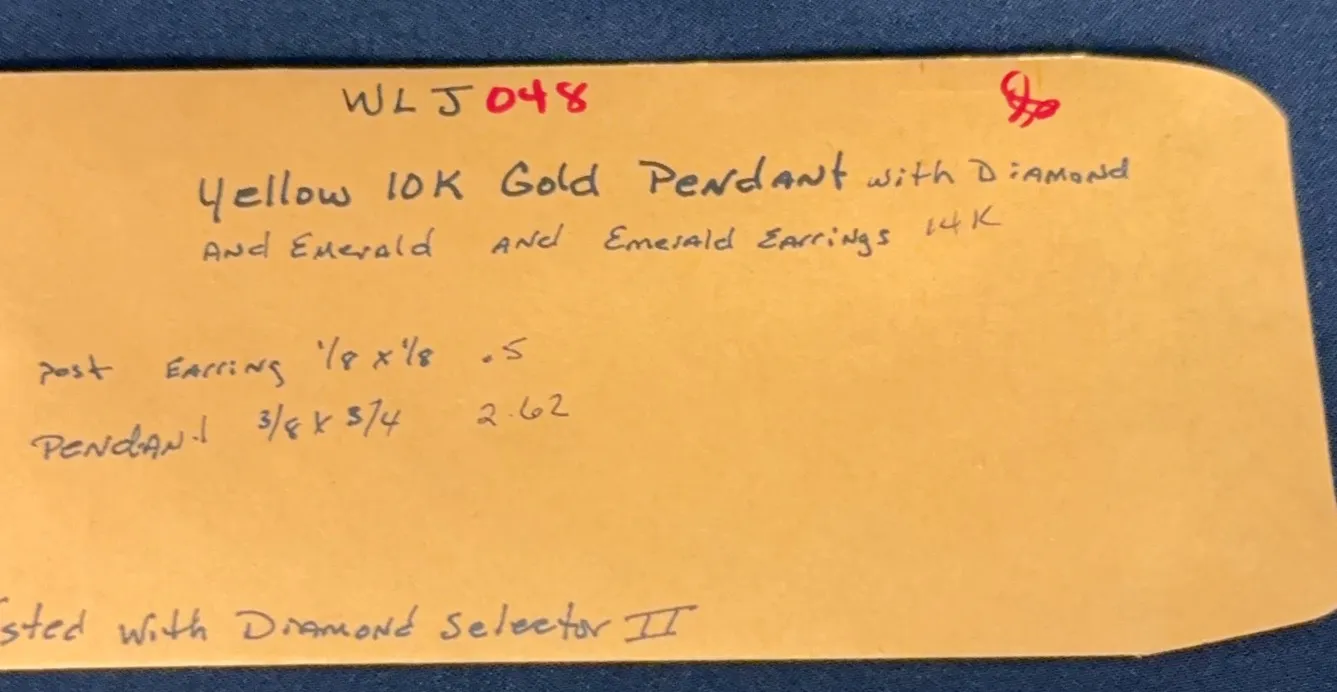 WLJ 048
Yellow 10K Gold Pendant with Diamond
And Emerald and Emerald Earrings 14K
Post Earring 1/8 x 1/8 .5
Pendant 3/8 x 3/4 2.62
sted with Diamond Selector II